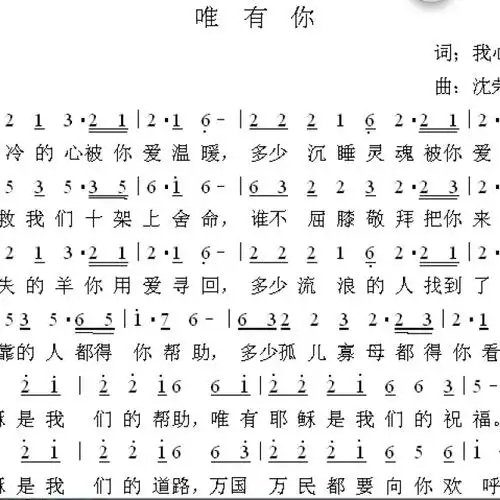 唯有你
词；我心
曲：沈荣
2 1 3·2 1|2·1 6-|2 2 2 1 6 2·2 1|2·
冷的心被你爱温暖，多少沉睡灵魂被你爱
5 3 5·3 5|6·i 6-|6 3 2 1 6 2·2 3|2·
救我们十架上舍命，谁不屈膝敬拜把你来
2 1 3·2 1|2·1 6-|2 2 2 1 6 2·2 1|2·
失的羊你用爱寻回，多少流浪的人找到了
5 3 5·6 5|i·7 6-|6 3 2 1 2 3·2 3|2·1
靠的人都得你帮助，多少孤儿寡母都得你看
2 i 2 2 i 6 6 i|2 2 2 i 2 i 6 6 3|5-
稣是我们的帮助，唯有耶稣是我们的祝福。
2 i 2 2 i 6 i 2|2 2 2 2 i 6 5 6|
稣是我们的道路，万国万民都要向你欢呼